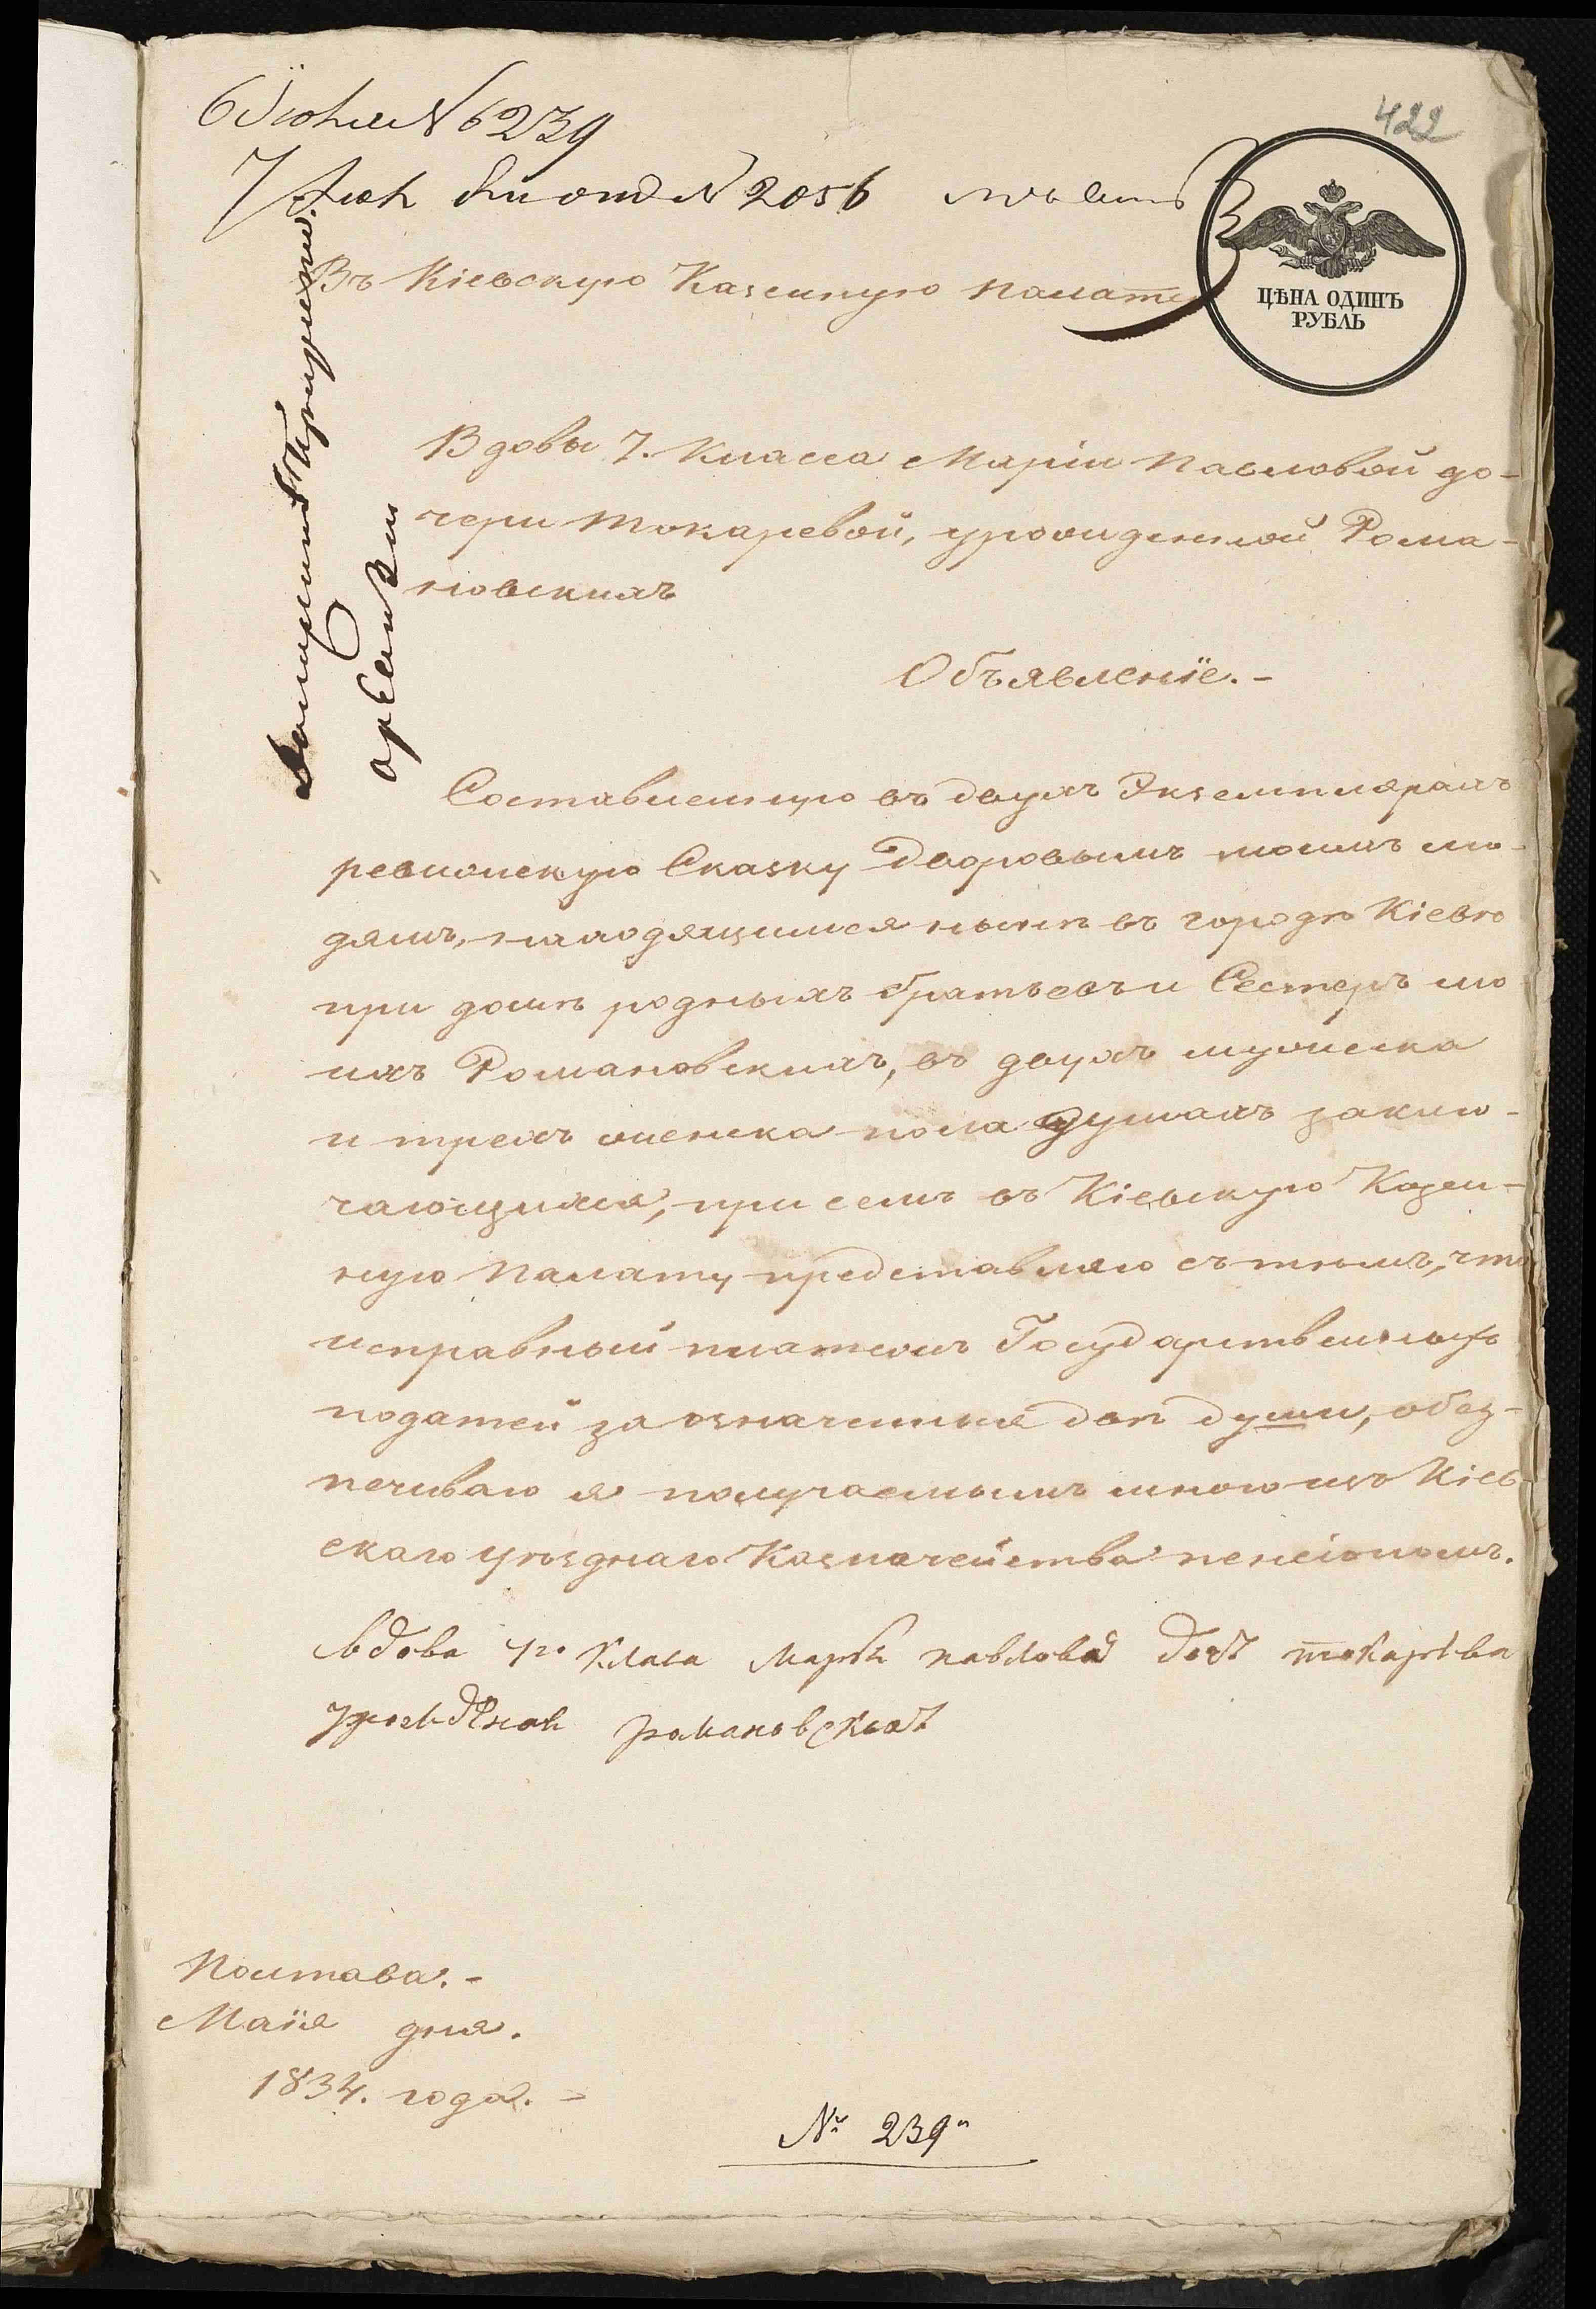 422
6 Іюня № 6239
7 Июн № 2056
ЦѢНА ОДИНЪ
РУБЛЬ
Въ Кіевскую Казенную Палату
Вдовы 7. Класса Маріи Павловой до-
чери Токаревой, урожденной Рома-
новскихъ
Объявленіе.-
Составленную въ двухъ Экземплярахъ
ревизскую Сказку Дворовымъ моимъ лю-
дямъ, находящимся нынѣ въ городѣ Кіевѣ
при домѣ родныхъ братьевъ и Сестеръ мо
ихъ Романовскихъ, въ двухъ мужеска
и трехъ женска пола душахъ заклю-
чающуюся, при семъ въ Кіевскую Казен-
ную Палату представляю съ тѣмъ, что
исправный платежъ Государственныхъ
податей за означенные двѣ души, обез-
печиваю я получаемымъ мною изъ Кіев-
скаго уѣзднаго Казначейства пенсіономъ.
вдова 7го Класа Маря павлова дочь токарѣва
романовскихъ
Полтава.-
Маія дня.
1834. года.-
№ 239